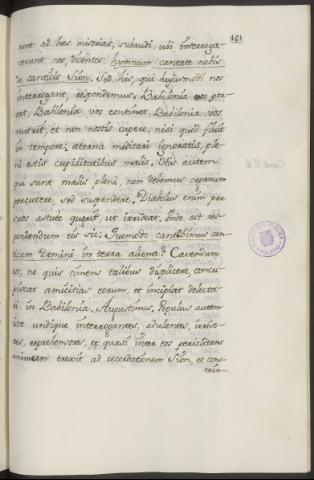 161
sunt ad has miserias, subaudi, ubi interroga-
verunt nos, dicentes: hymnum cantate nobis
de canticis Sion. Sed his, qui hujusmodi nos
interrogant, respondemus. Babilonia vos por-
tat, Babilonia vos continet, Babilonia vos
nutrit, et non nostis capere, nisi quod fluit
in tempore; æterna meditari ignoratis, ple-
ni estis cupiditatibus malis. His autem
qui sunt malis pleni, non debemus organum
percutere, sed suspendere. Diabolus enim per
eos astute quærit, ut irrideat, unde est res-
pondendum eis sic: Quomodo cantabimus can-
ticum Domini in terra aliena? Cavendum
ne quis timens talibus displicere, concu-
piscat amicitias eorum, et incipiat delecta-
ri in Babilonia. Augustinus. Populus autem
iste undique interrogantes, adulantes, irriden-
tes, reprehensores, et quasi inter eos periclitans
animam erexit ad recordationem Sion, et cons-
trin-